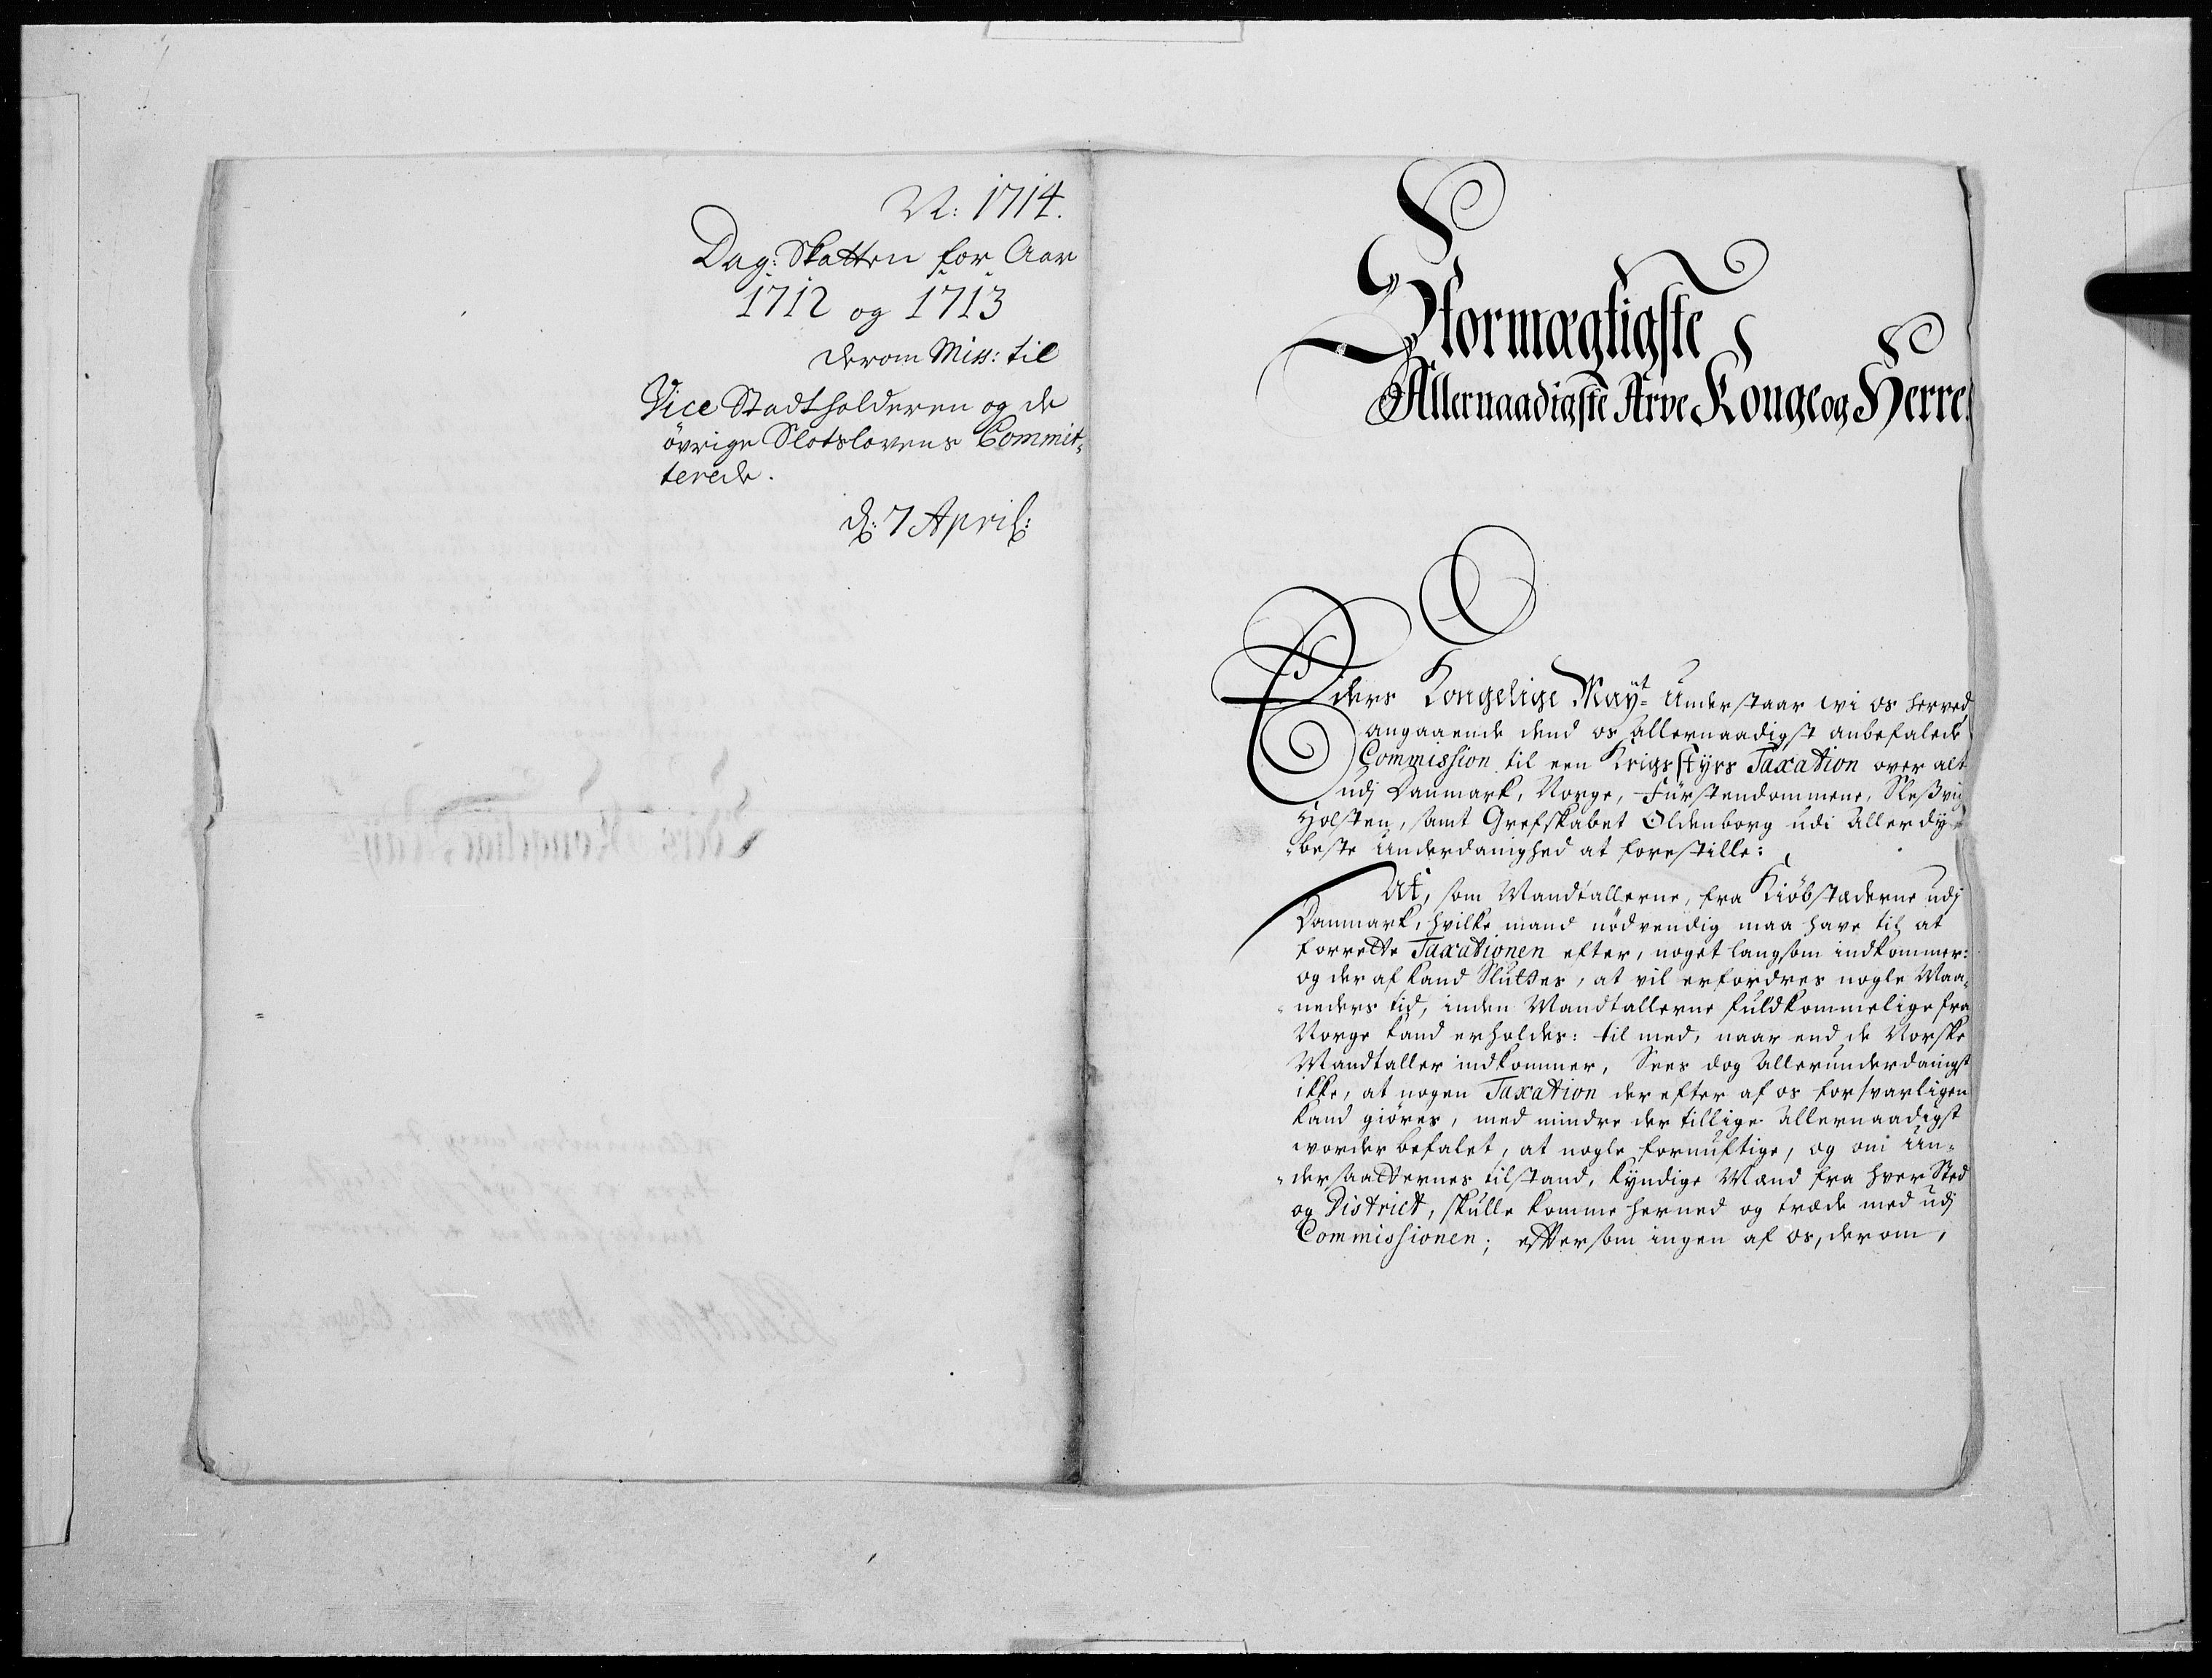 N: 1714.
Dag: Skatten for Aar
1712 og 1713
derom Miss: til
Vice Stadtholderen og de
övrige Slotslovens Commit-
terede.
d: 7 April:
Stormægtigste
Allernaadigste Arve Konge og Herre.
Eders Kongelige Mayt: understaar wi os herved
angaaende dend os allernaadigst anbefalede
Commission til een Krigsstyrs Taxation over alt
udj Danmark, Norge, Fürstendommene, Sleßvig
Holsten, samt Grefskabet Oldenborg udi allerdy-
beste underdanighed at forestille:
At, som Mandtallerne, fra Kiöbstæderne udj
Danmark, hvilke mand nödvendig maa have til at
forrette Taxationen efter, noget langsom indkommer:
og der af kand Sluttes, at vil erfordres nogle Maa-
neders tid, inden Mandtallerne fuldkommelige fra
Norge kand erholdes: til med, naar end de Norske
Mandtaller indkommer, Sees dog allerunderdanigst
ikke, at nogen Taxation der efter af os forsvarligen
kand giöres, med mindre der tillige allernaadigst
worder befalet, at nogle fornuftige, og om Un-
dersaatternes tilstand, kyndige Mænd fra hver Sted
og District, skulle komme herned og træde med udj
Commissionen; efftersom ingen af os, der om,